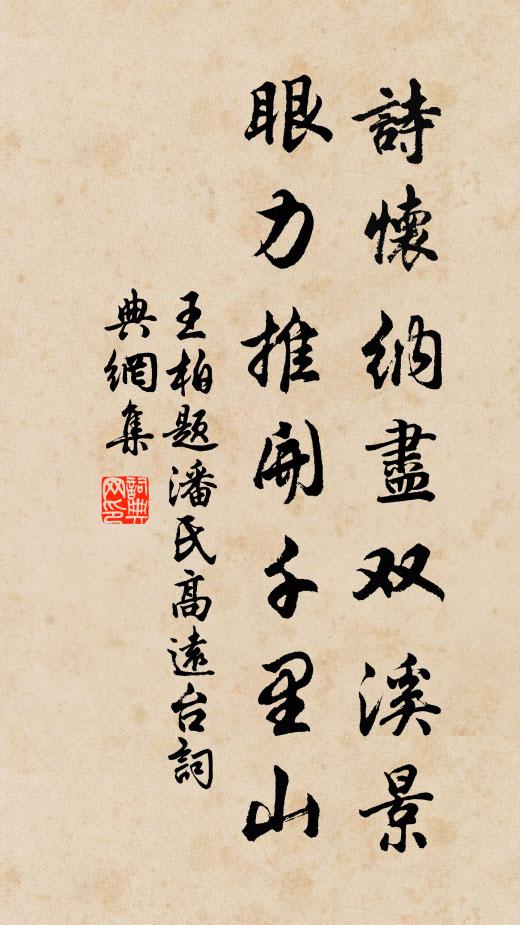 詩懷納盡双溪景
眼力推開千里山
王柏題潘氏高遠台詞
典網集
詞典
网印